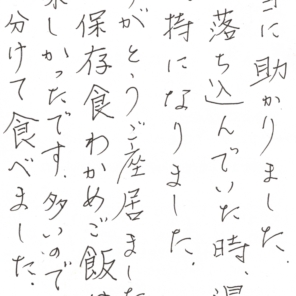 に助かりました
落ち込んでいた時、温
持になりました。
がとうご座居ました
保存食わかめご飯は
しかったです。多いので
分けて食べました。